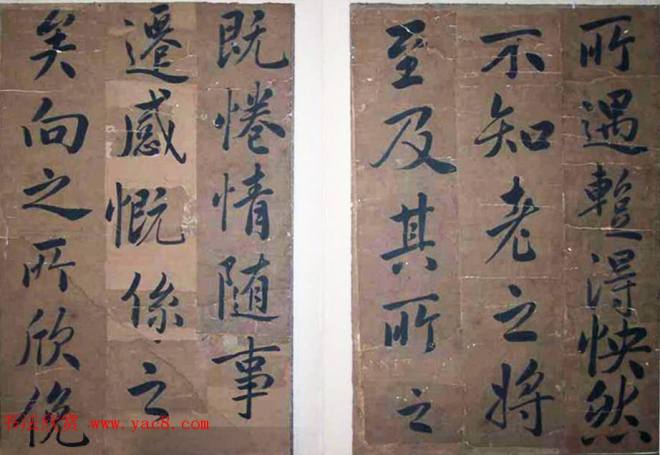 所遇暫得怏然
不知老之将
至及其所之
既惓情随事
遷感慨係之
矣向之所欣俛
书法欣赏 www.yac8.com